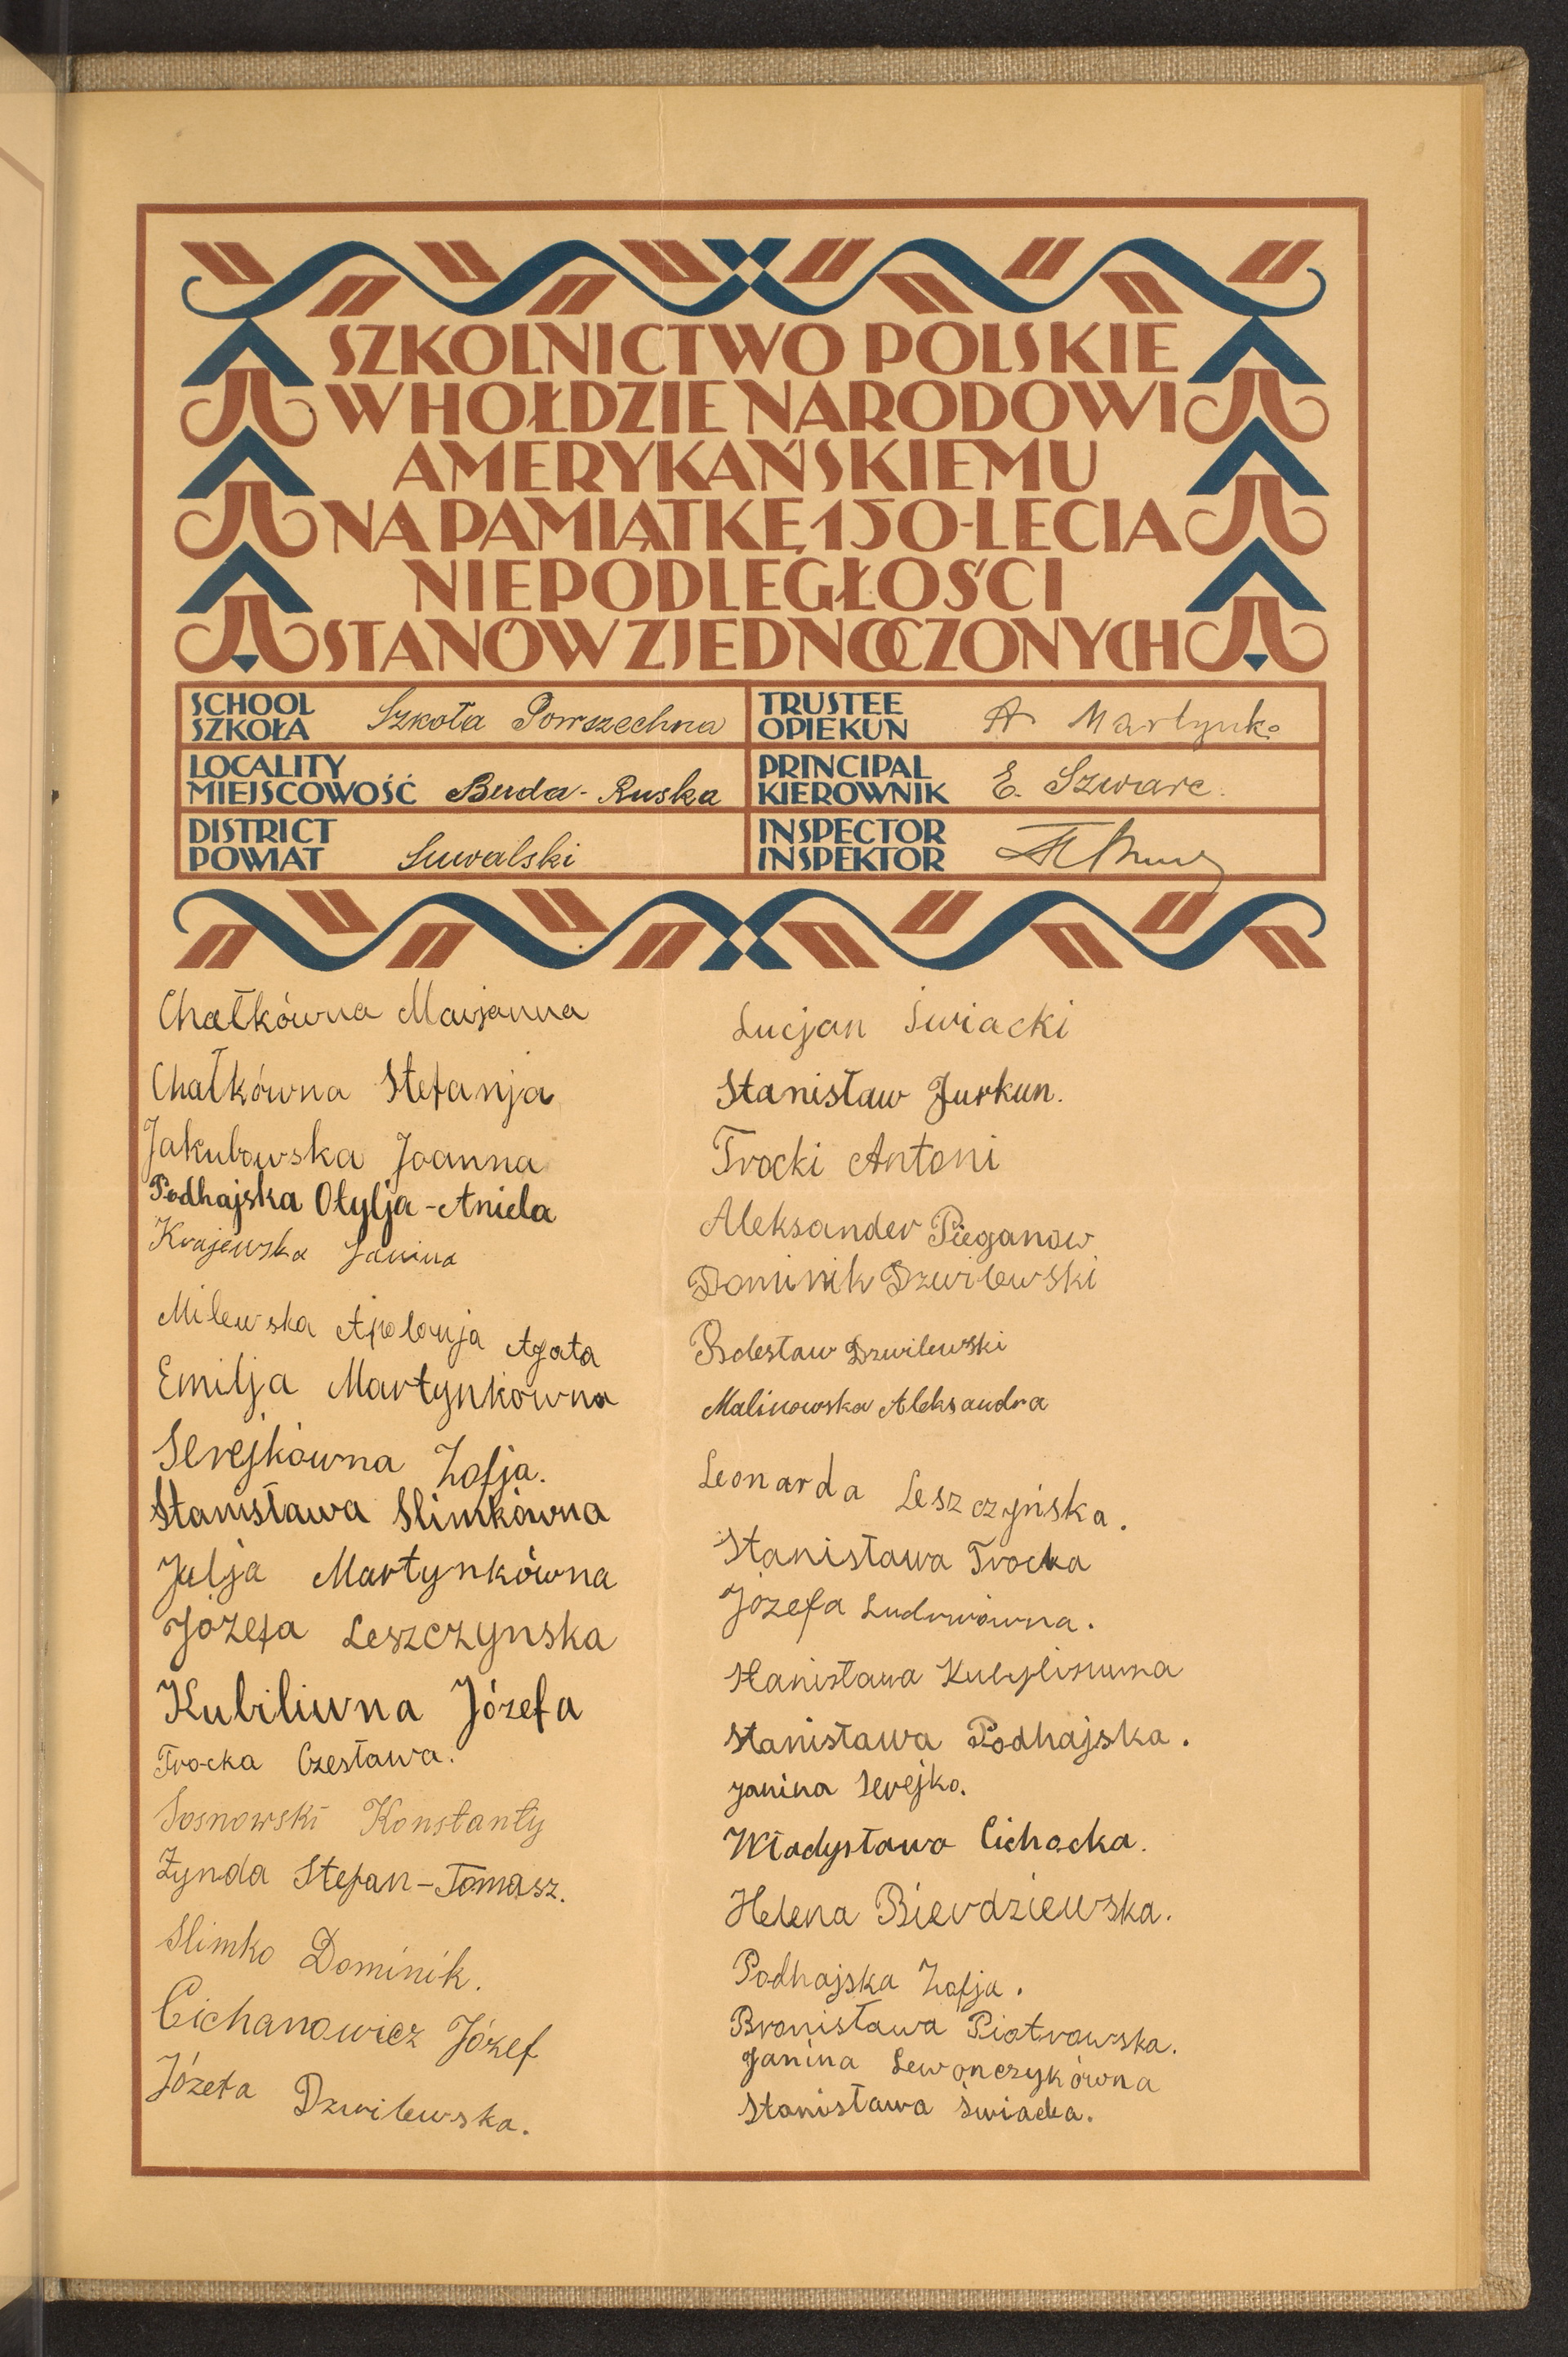 SZKOLNICTWO POLSKIE
W HOŁDZIE NARODOWI
AMERYKAŃSKIEMU
NA PAMIĄTKĘ 150-LECIA
NIEPODLEGŁOŚCI
STANÓW ZJEDNOCZONYCH
SCHOOL
SZKOŁA Szkoła Powszechna
TRUSTEE
OPIEKUN A Martynko
LOCALITY
MIEJSCOWOŚĆ Buda-Ruska
PRINCIPAL
KIEROWNIK E. Szwarc.
DISTRICT
POWIAT Suwalski
INSPECTOR
INSPEKTOR
Chałkówna Marjanna
Chałkówna Stefanja
Jakubowska Joanna
Podhajska Otylja-Aniela
Krajewska Janina
Milewska Apolonja Agata
Emilja Martynkówna
Serejkówna Zofja.
Stanisława Slimkówna
Julja Martynkówna
Józefa Leszczynska
Kubiliuvna Józefa
Trocka Czesława.
Sosnowski Konstanty
Zynda Stefan-Tomasz.
Slimko Dominik.
Cichanowicz Józef
Józefa Dzwilewska.
Lucjan Świacki
Stanisław Jurkun.
Trocki Antoni
Aleksander Pieganow
Dominik Dzwilewski
Bolesław Dzwilewski
Malinowska Aleksandra
Leonarda Leszczyńska.
Stanisława Trocka
Józefa
Stanisława
Stanisława Podhajska.
Janina Serejko.
Władysława Cichocka.
Helena Bierdziewska.
Podhajska Zofja.
Bronisława Piotrowska.
Janina Lewonczykówna
Stanisława Świacka.